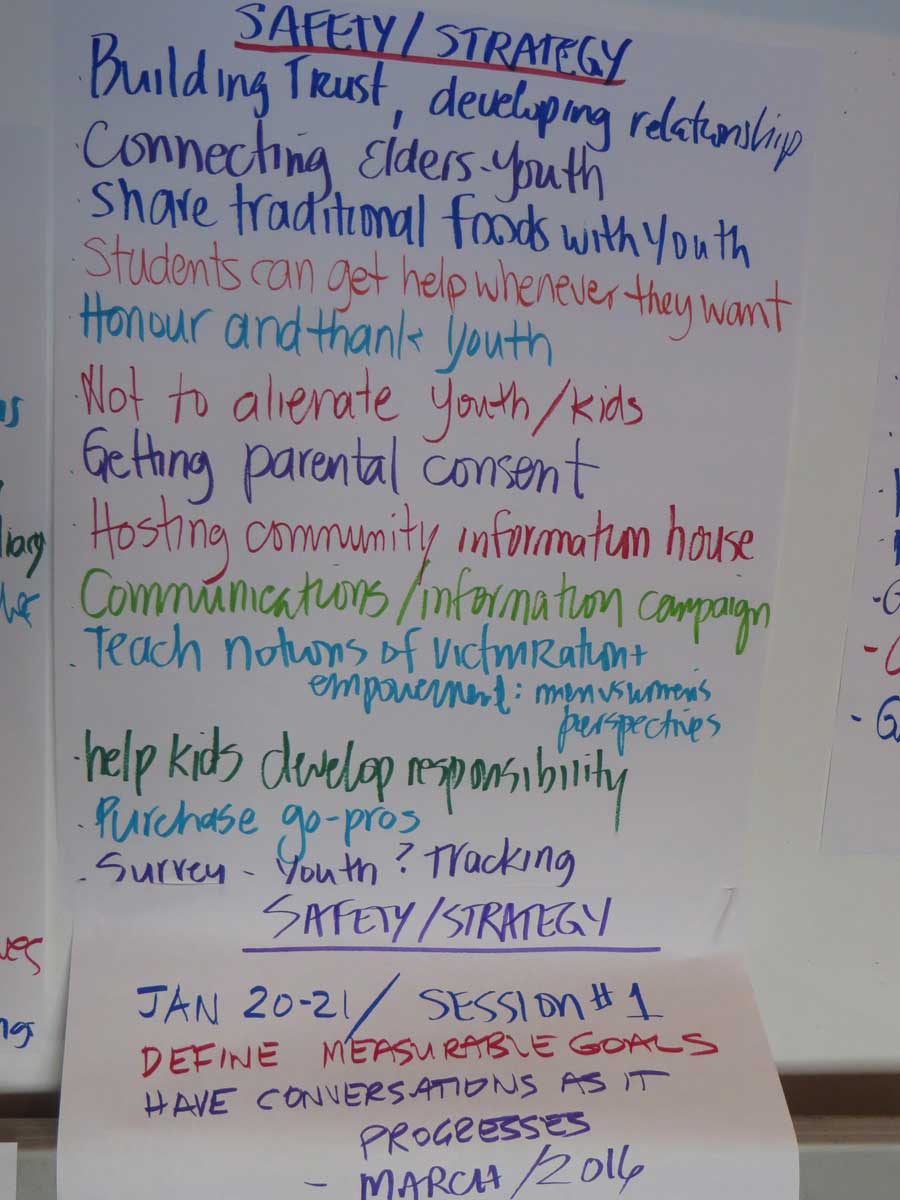 SAFETY/STRATEGY
· Building Trust, developing relationship
· Connecting Elders-Youth
· Share traditional foods with Youth
· Students can get help whenever they want
· Honour and thank Youth
· Not to alienate youth/kids
· Getting parental consent
· Hosting community information house
Communications/information campaign
· Teach notions of victimization +
empowerment: men vs women's
perspectives
· help kids develop responsibility
· Purchase go-pros
· Survey - Youth? Tracking
SAFETY/STRATEGY
JAN 20-21/ SESSION #1
DEFINE MEASURABLE GOALS
HAVE CONVERSATIONS AS IT
PROGRESSES
- MARCH/2016